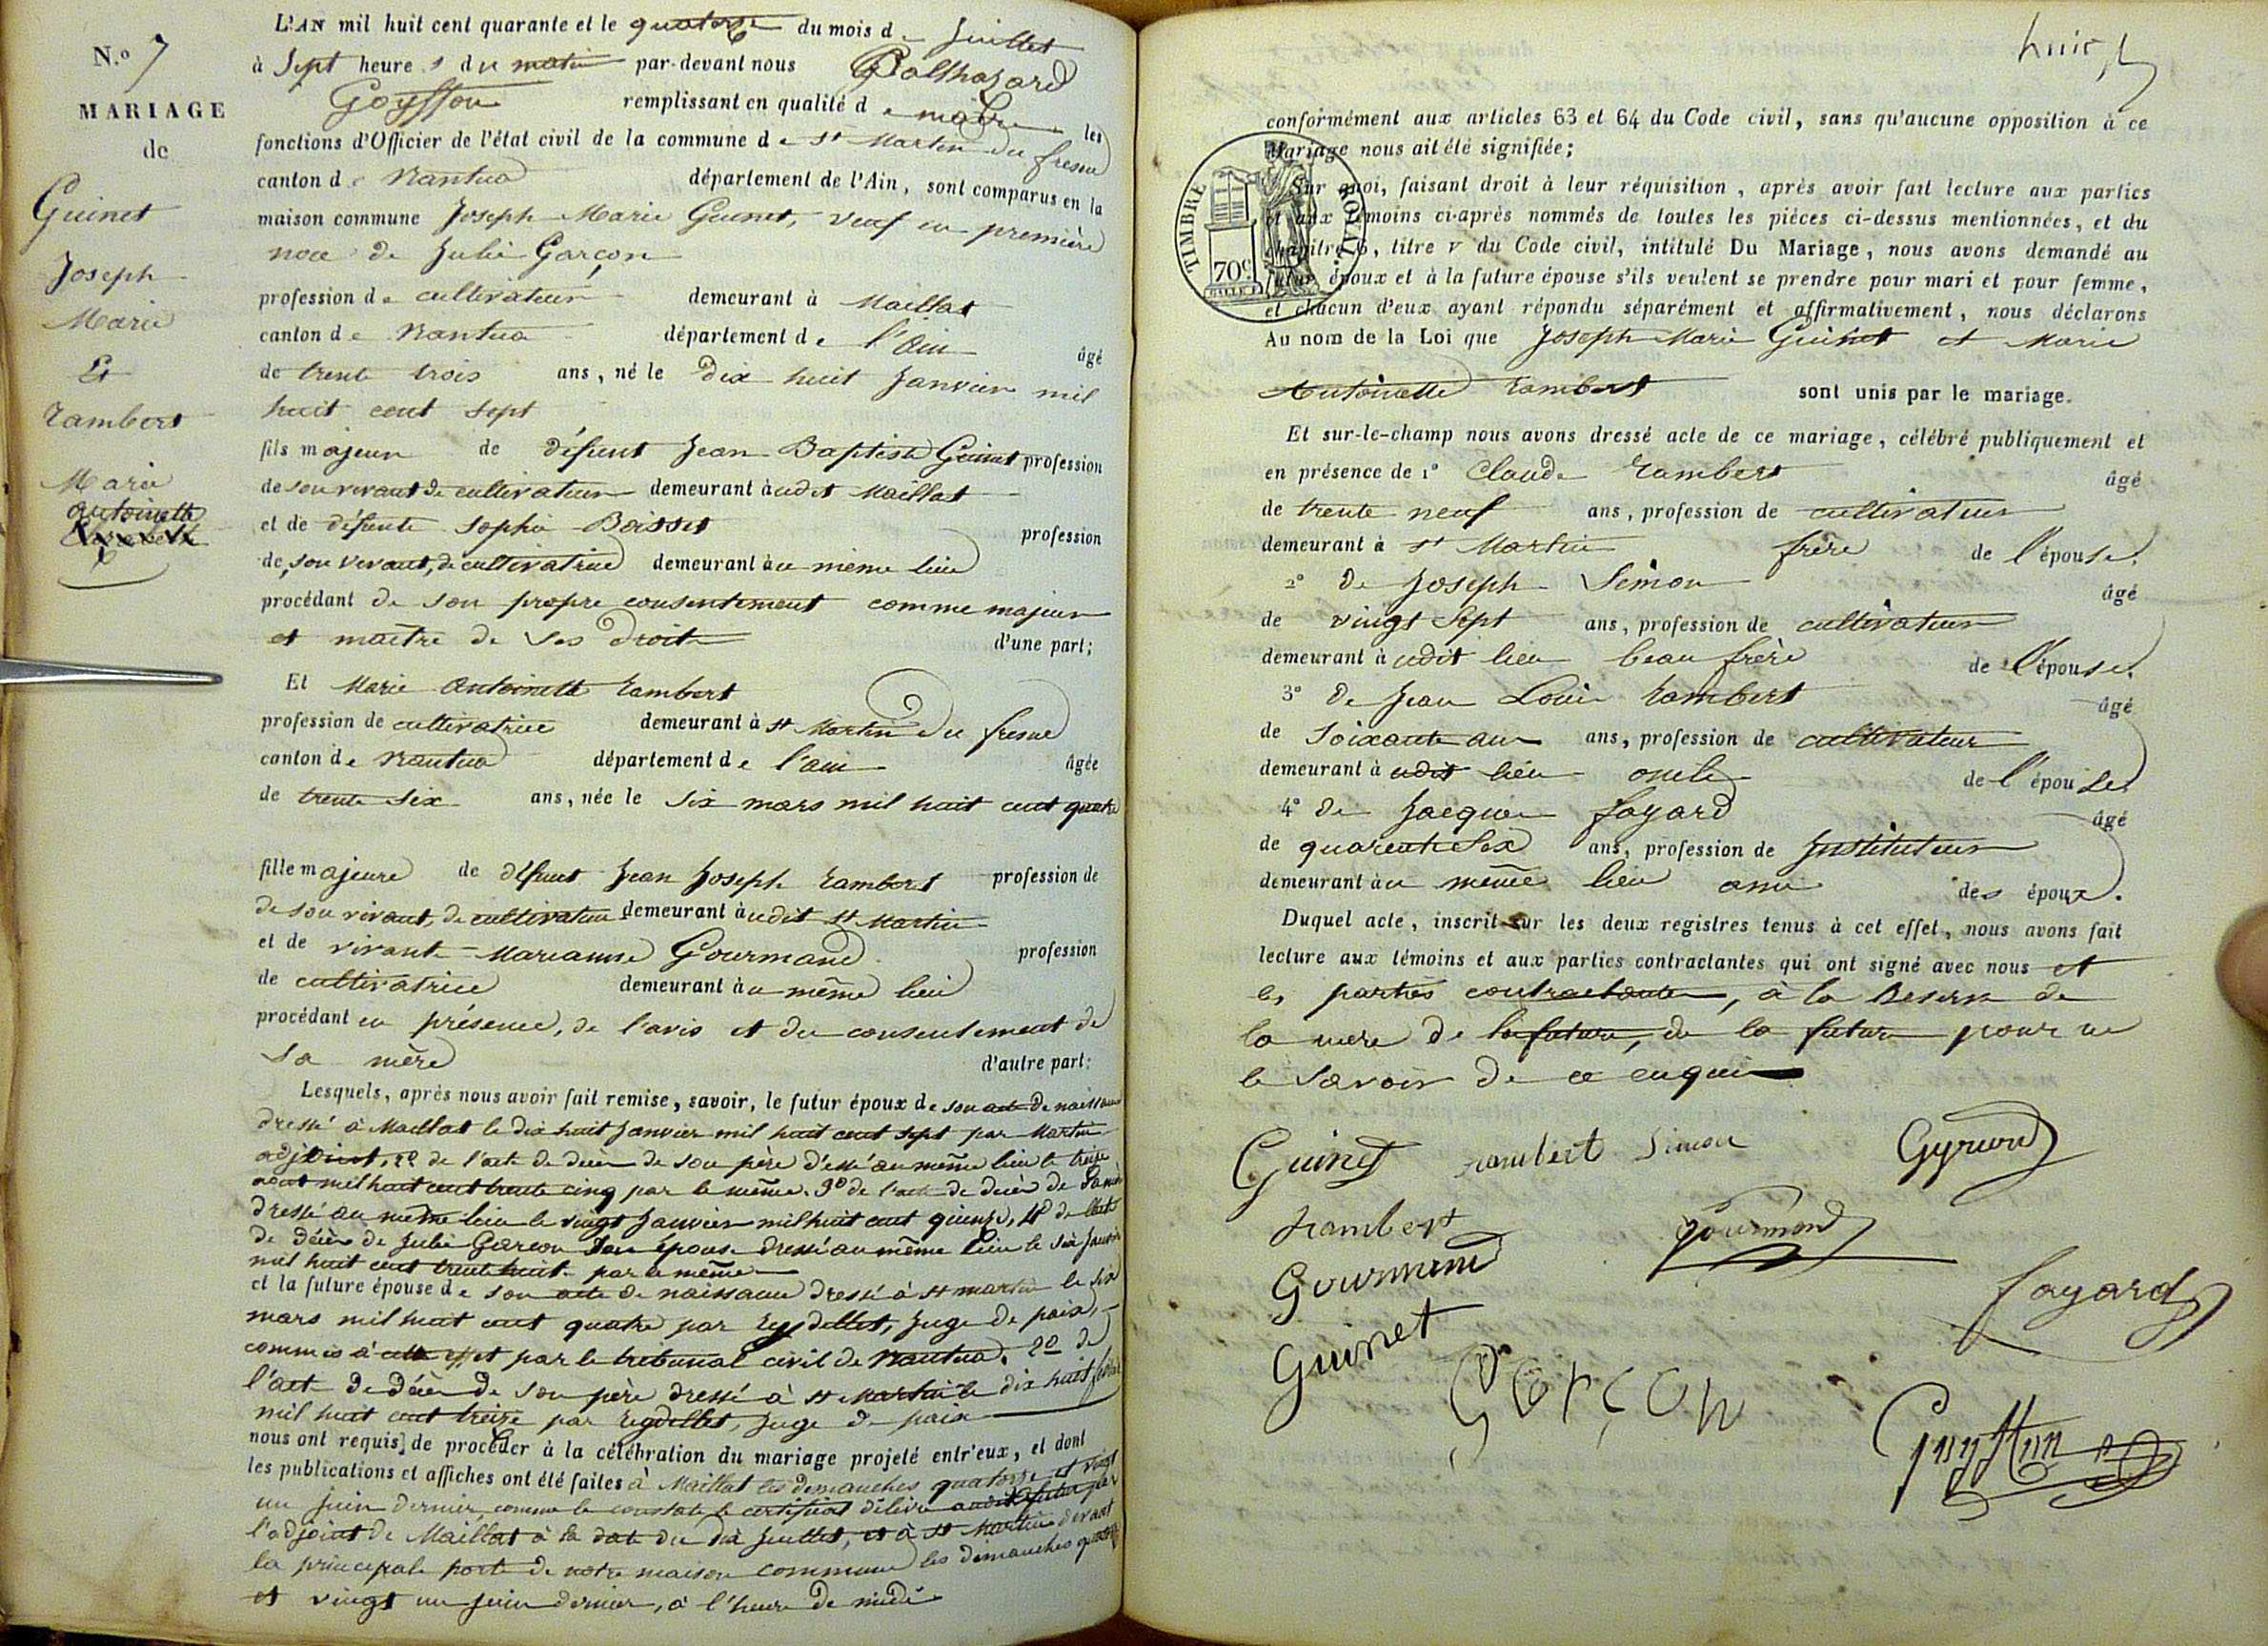 N.o 7
MARIAGE
de
Guinet
Joseph
Marie
Et
Rambert
Marie
antoinette
L'AN mil huit cent quarante et le quatorze du mois de Juillet
à Sept heures du matin par-devant nous Balthazard
Goyffon remplissant en qualité de maire les
fonctions d'Officier de l'état civil de la commune de St Martin du fresne
canton de Nantua département de l'Ain, sont comparus en la
maison commune Joseph Marie Guinet, veuf en première
noce de Julie Garçon
profession de cultivateur demeurant à Maillat
canton de Nantua département de l'Ain âgé
de trente trois ans, né le dix huit Janvier mil
huit cent sept
fils majeur de défunt Jean Baptiste Guinet profession
de son vivant de cultivateur demeurant audit Maillat
et de défunte Sophie Boisset profession
de, son vivant, de cultivatrice demeurant au même lieu
procédant de son propre consentement comme majeur
et maître de ses droits d'une part;
Et Marie antoinette Rambert
profession de cultivatrice demeurant à st Martin du fresne
canton de Nantua département de l'ain âgée
de trente six ans, née le six mars mil huit cent quatre
fille majeure de défunt Jean Joseph Rambert profession de
de son vivant, de cultivateur demeurant audit St Martin
et de vivante Marianne Gourmand profession
de cultivatrice demeurant au même lieu
procédant en présence, de l'avis et du consentement de
sa mère d'autre part:
Lesquels, après nous avoir fait remise, savoir, le futur époux de son acte de naissance
dressé à Maillat le dix huit Janvier mil huit cent sept par Martin
adjoint, 2o de l'acte de décès de son père dressé au même lieu le treize
aout mil huit cent trente cinq par le même. 3o de l'acte de décès de sa mère
dressé au même lieu le vingt Janvier mil huit cent quinze, 4o de l'acte
de décès de Julie Garçon son épouse dressé au même lieu le six Janvier
mil huit cent trente huit par le même
et la future épouse de son acte de naissance dressé à st martin le six
mars mil huit cent quatre par Reydellet, Juge de paix,
commis à cette effet par le tribunal civil de Nantua. 2o de
l'acte de décès de son père dressé à st Martin le dix huit
mil huit cent treize par Reydellet, Juge de paix
nous ont requis de procéder à la célébration du mariage projeté entr'eux, et dont
les publications et affiches ont été faites à Maillat les dimanches quatorze et vingt
un juin dernier, comme le constate le certificat délivré audit futur par
l'adjoint de Maillat à la date du dix Juillet, et à st Martin devant
la principale porte de notre maison commune les dimanches quatorze
et vingt un juin dernier, à l'heure de midi
huit
conformément aux articles 63 et 64 du Code civil, sans qu'aucune opposition à ce
Mariage nous ait été signifiée;
TIMBRE ROYAL
70c
Sur quoi, faisant droit à leur réquisition, après avoir fait lecture aux parties
et aux témoins ci-après nommés de toutes les pièces ci-dessus mentionnées, et du
chapitre 6, titre v du Code civil, intitulé Du Mariage, nous avons demandé au
futur époux et à la future épouse s'ils veulent se prendre pour mari et pour femme,
et chacun d'eux ayant répondu séparément et affirmativement, nous déclarons
Au nom de la Loi que Joseph Marie Guinet et Marie
Antoinette Rambert sont unis par le mariage.
Et sur-le-champ nous avons dressé acte de ce mariage, célébré publiquement et
en présence de 1o Claude Rambert âgé
de trente neuf ans, profession de cultivateur
demeurant à st Martin frère de l'épouse.
2o de Joseph Simon âgé
de vingt sept ans, profession de cultivateur
demeurant audit lieu beau frère de l'épouse.
3o de Jean Louis Rambert âgé
de soixante ans, profession de cultivateur
demeurant à udit lieu oncle de l'épouse
4o de Jacques fayard âgé
de quarente six ans, profession de Instituteur
demeurant au même lieu ami des époux.
Duquel acte, inscrit sur les deux registres tenus à cet effet, nous avons fait
lecture aux témoins et aux parties contractantes qui ont signé avec nous et
les parties contractantes, à la Reserve de
la mere de la future, de la future pour ne
le savoir de ce enquis
Guinet rambert Simon
rambert gourmand
Gourmand
fayard
Guinet
GarÇon
Goyffon